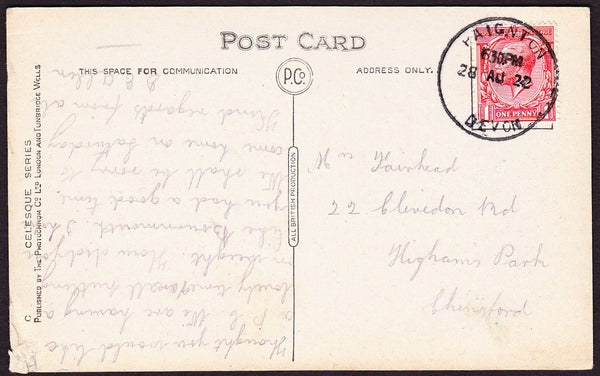 POST CARD
THIS SPACE FOR COMMUNICATION
P.Co.
ADDRESS ONLY.
PAIGNTON
6 30PM
28 AU 22
DEVON
ONE PENNY
C CELESQUE SERIES
PUBLISHED BY THE PHOTOCHROM CO. LTD LONDON AND TUNBRIDGE WELLS
ALL BRITISH PRODUCTION
Thought you would like
a P.C. We are having a
lovely time
in the
like Bournemouth. I
you had a good time.
We shall be sorry to
come home on Saturday
Kind regards from all
Fairhead
22 Clevedon Rd
Highams Park
Chingford